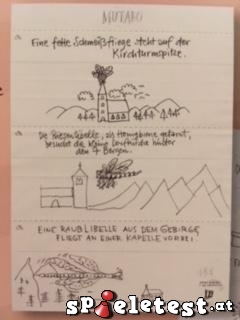 MUTABO
Eine fette Schmeißfliege steht auf der
Kirchturmspitze.
Die Riesenlibelle, als Honigbiene getarnt,
besucht die kleine Dorfkirche hinter
den 4 Bergen.
EINE RAUBLIBELLE AUS DEM GEBIRGE
FLIEGT AN EINER KAPELLE VORBEI
spieletest.at